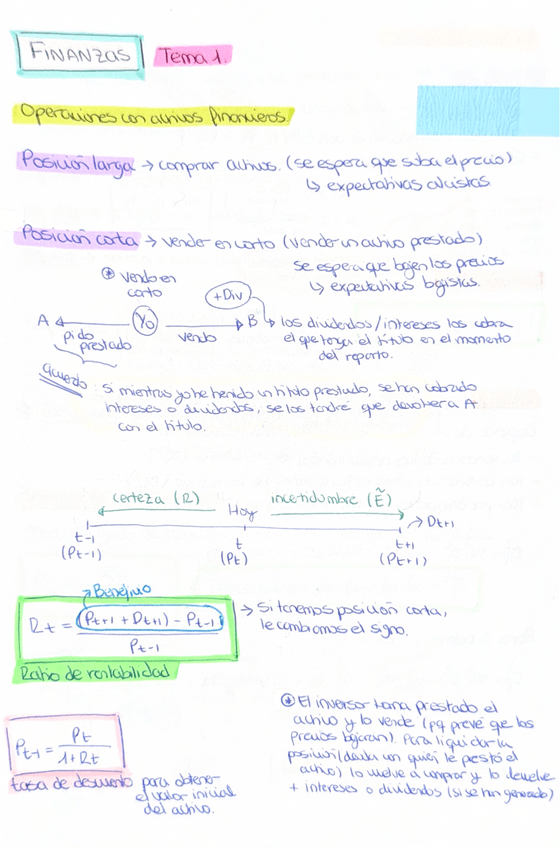 FINANZAS Tema 1.
Operaciones con activos financieros.
Posición larga → comprar activos. (se espera que suba el precio)
↳ expectativas alcistas
Posición corta → vender en corto (vender un activo prestado)
se espera que bajen los precios
↳ expectativas bajistas.
* vendo en
corto
+Div
A ← Yo → B ↳ los dividendos/intereses los cobra
pido vendo el que tenga el título en el momento
prestado del reparto.
acuerdo: si mientras yo he tenido un título prestado, se han cobrado
intereses o dividendos, se los tendré que devolver a A
con el título.
certeza (R) Hoy incertidumbre (Ẽ)
→ Dt+1
t-1 t t+1
(Pt-1) (Pt) (Pt+1)
→ Beneficio
Rt = (Pt+1 + Dt+1) - Pt-1 / Pt-1
→ Si tenemos posición corta,
le cambiamos el signo.
Ratio de rentabilidad
Pt-1 = Pt / 1+Rt
tasa de descuento para obtener
el valor inicial
del activo.
* El inversor toma prestado el
activo y lo vende (pq prevé que los
precios bajaran). Para liquidar la
posición (deuda con quien le prestó el
activo) lo vuelve a comprar y lo devuelve
+ intereses o dividendos (si se han generado)